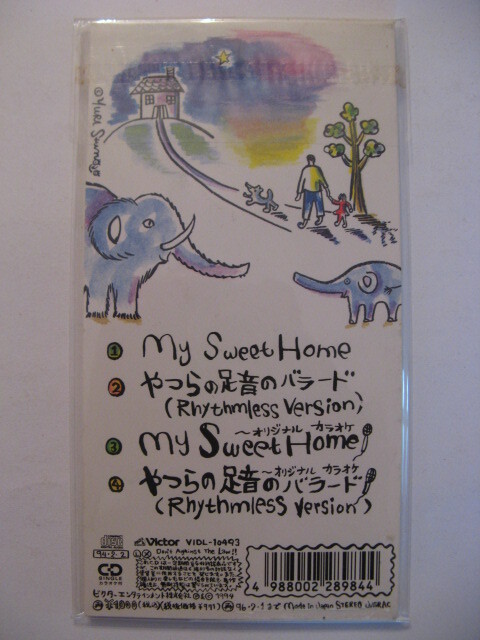 1 My Sweet Home
2 やつらの足音のバラード
(Rhythmless Version)
3 My Sweet Home
〜オリジナル カラオケ
4 やつらの足音のバラード
〜オリジナル カラオケ
(Rhythmless Version)
Victor VIDL-10493
Don't Against The Law!!
94・2・2
CD
SINGLE
ビクターエンタテインメント株式会社 1994
(税抜価格 ¥971)
96・2・1まで Made in Japan STEREO
4 988002 289844